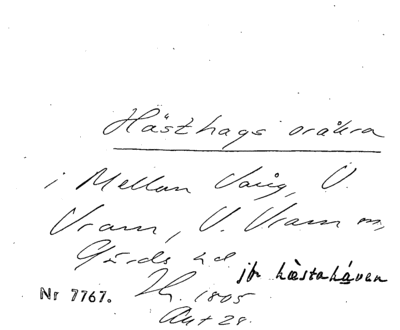 Hästhags oråkra
i Mellan Vång, V.
Vram, V. Vram sn,
Gärds hd
jfr hæstahåven
Nr 7767. 1805
Akt 28